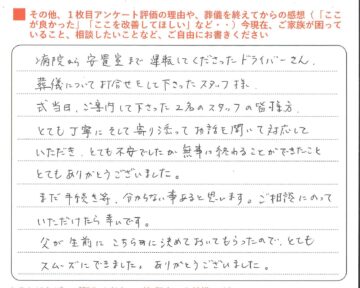 ■ その他、１枚目アンケート評価の理由や、葬儀を終えてからの感想（「ここ
が良かった」「ここを改善してほしい」など・・）今現在、ご家族が困って
いること、相談したいことなど、ご自由にお書きください
病院から安置室まで運転してくださったドライバーさん、
葬儀についてお打合せをして下さったスタッフ様、
式当日、ご案内して下さった2名のスタッフの皆様方、
とても丁寧にそして寄り添ってお話を聞いて対応して
いただき、とても不安でしたが無事に終わることができたこと
とてもありがとうございました。
まだ手続き等、分からない事あると思います。ご相談にのって
いただけたら幸いです。
父が生前にこちらに決めておいてもらったので、とても
スムーズにできました。ありがとうございました。